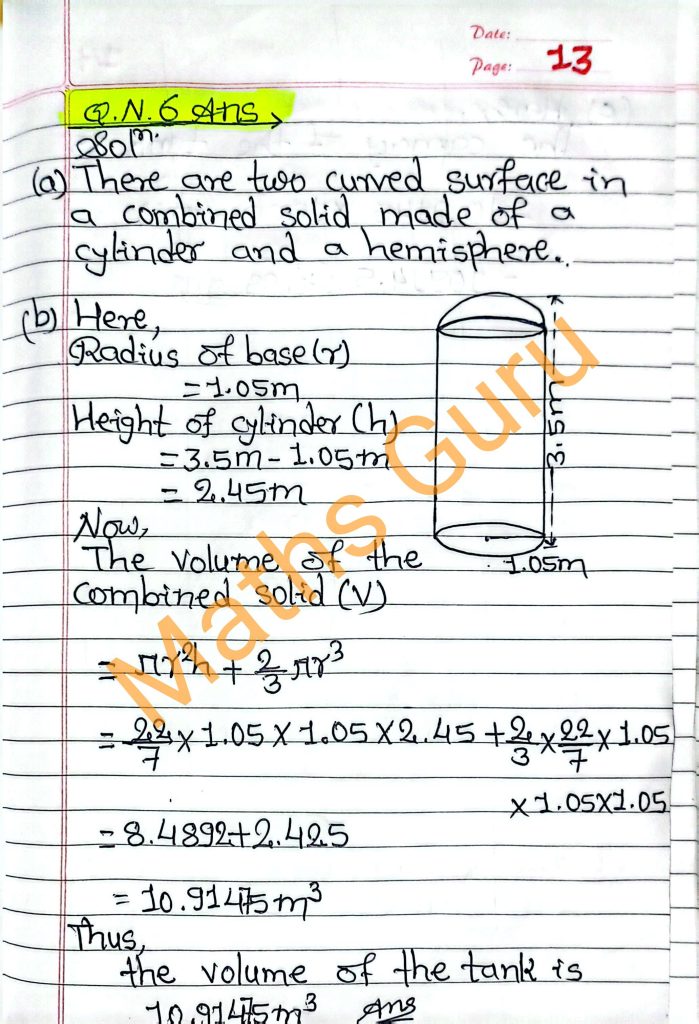 Date:
Page: 13
Q.N. 6 Ans
Solⁿ.
(a) There are two curved surface in
a combined solid made of a
cylinder and a hemisphere.
(b) Here,
Radius of base (r)
= 1.05m
Height of cylinder (h)
= 3.5m - 1.05m
= 2.45m
3.5m
1.05m
Now,
The volume of the
combined solid (V)
= πr²h + 2/3 πr³
= 22/7 × 1.05 × 1.05 × 2.45 + 2/3 × 22/7 × 1.05
× 1.05 × 1.05
= 8.4892 + 2.425
= 10.91475 m³
Thus,
the volume of the tank is
10.91475 m³ Ans
Maths Guru